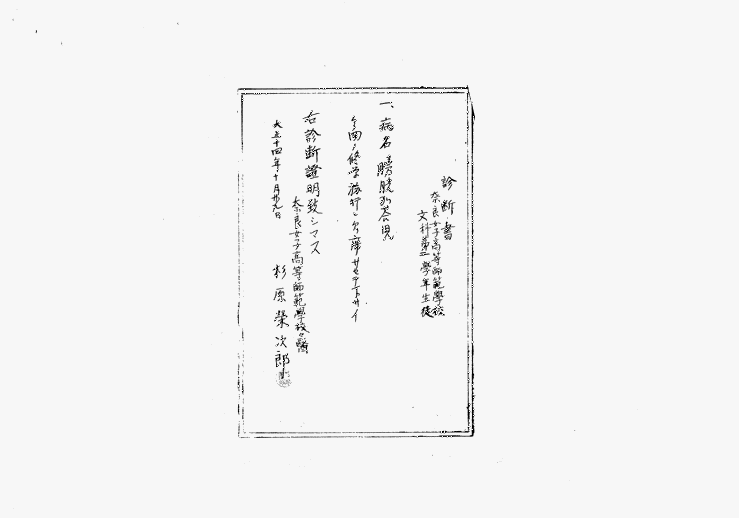 診断書
奈良女子高等師範學校
文科第二學年生徒
一、病名 膀胱加答児
今回ノ修学旅行ヲ欠席サセテ下サイ
右診断證明致シマス
奈良女子高等師範學校校醫
大正十四年十月廿九日
杉原榮次郎